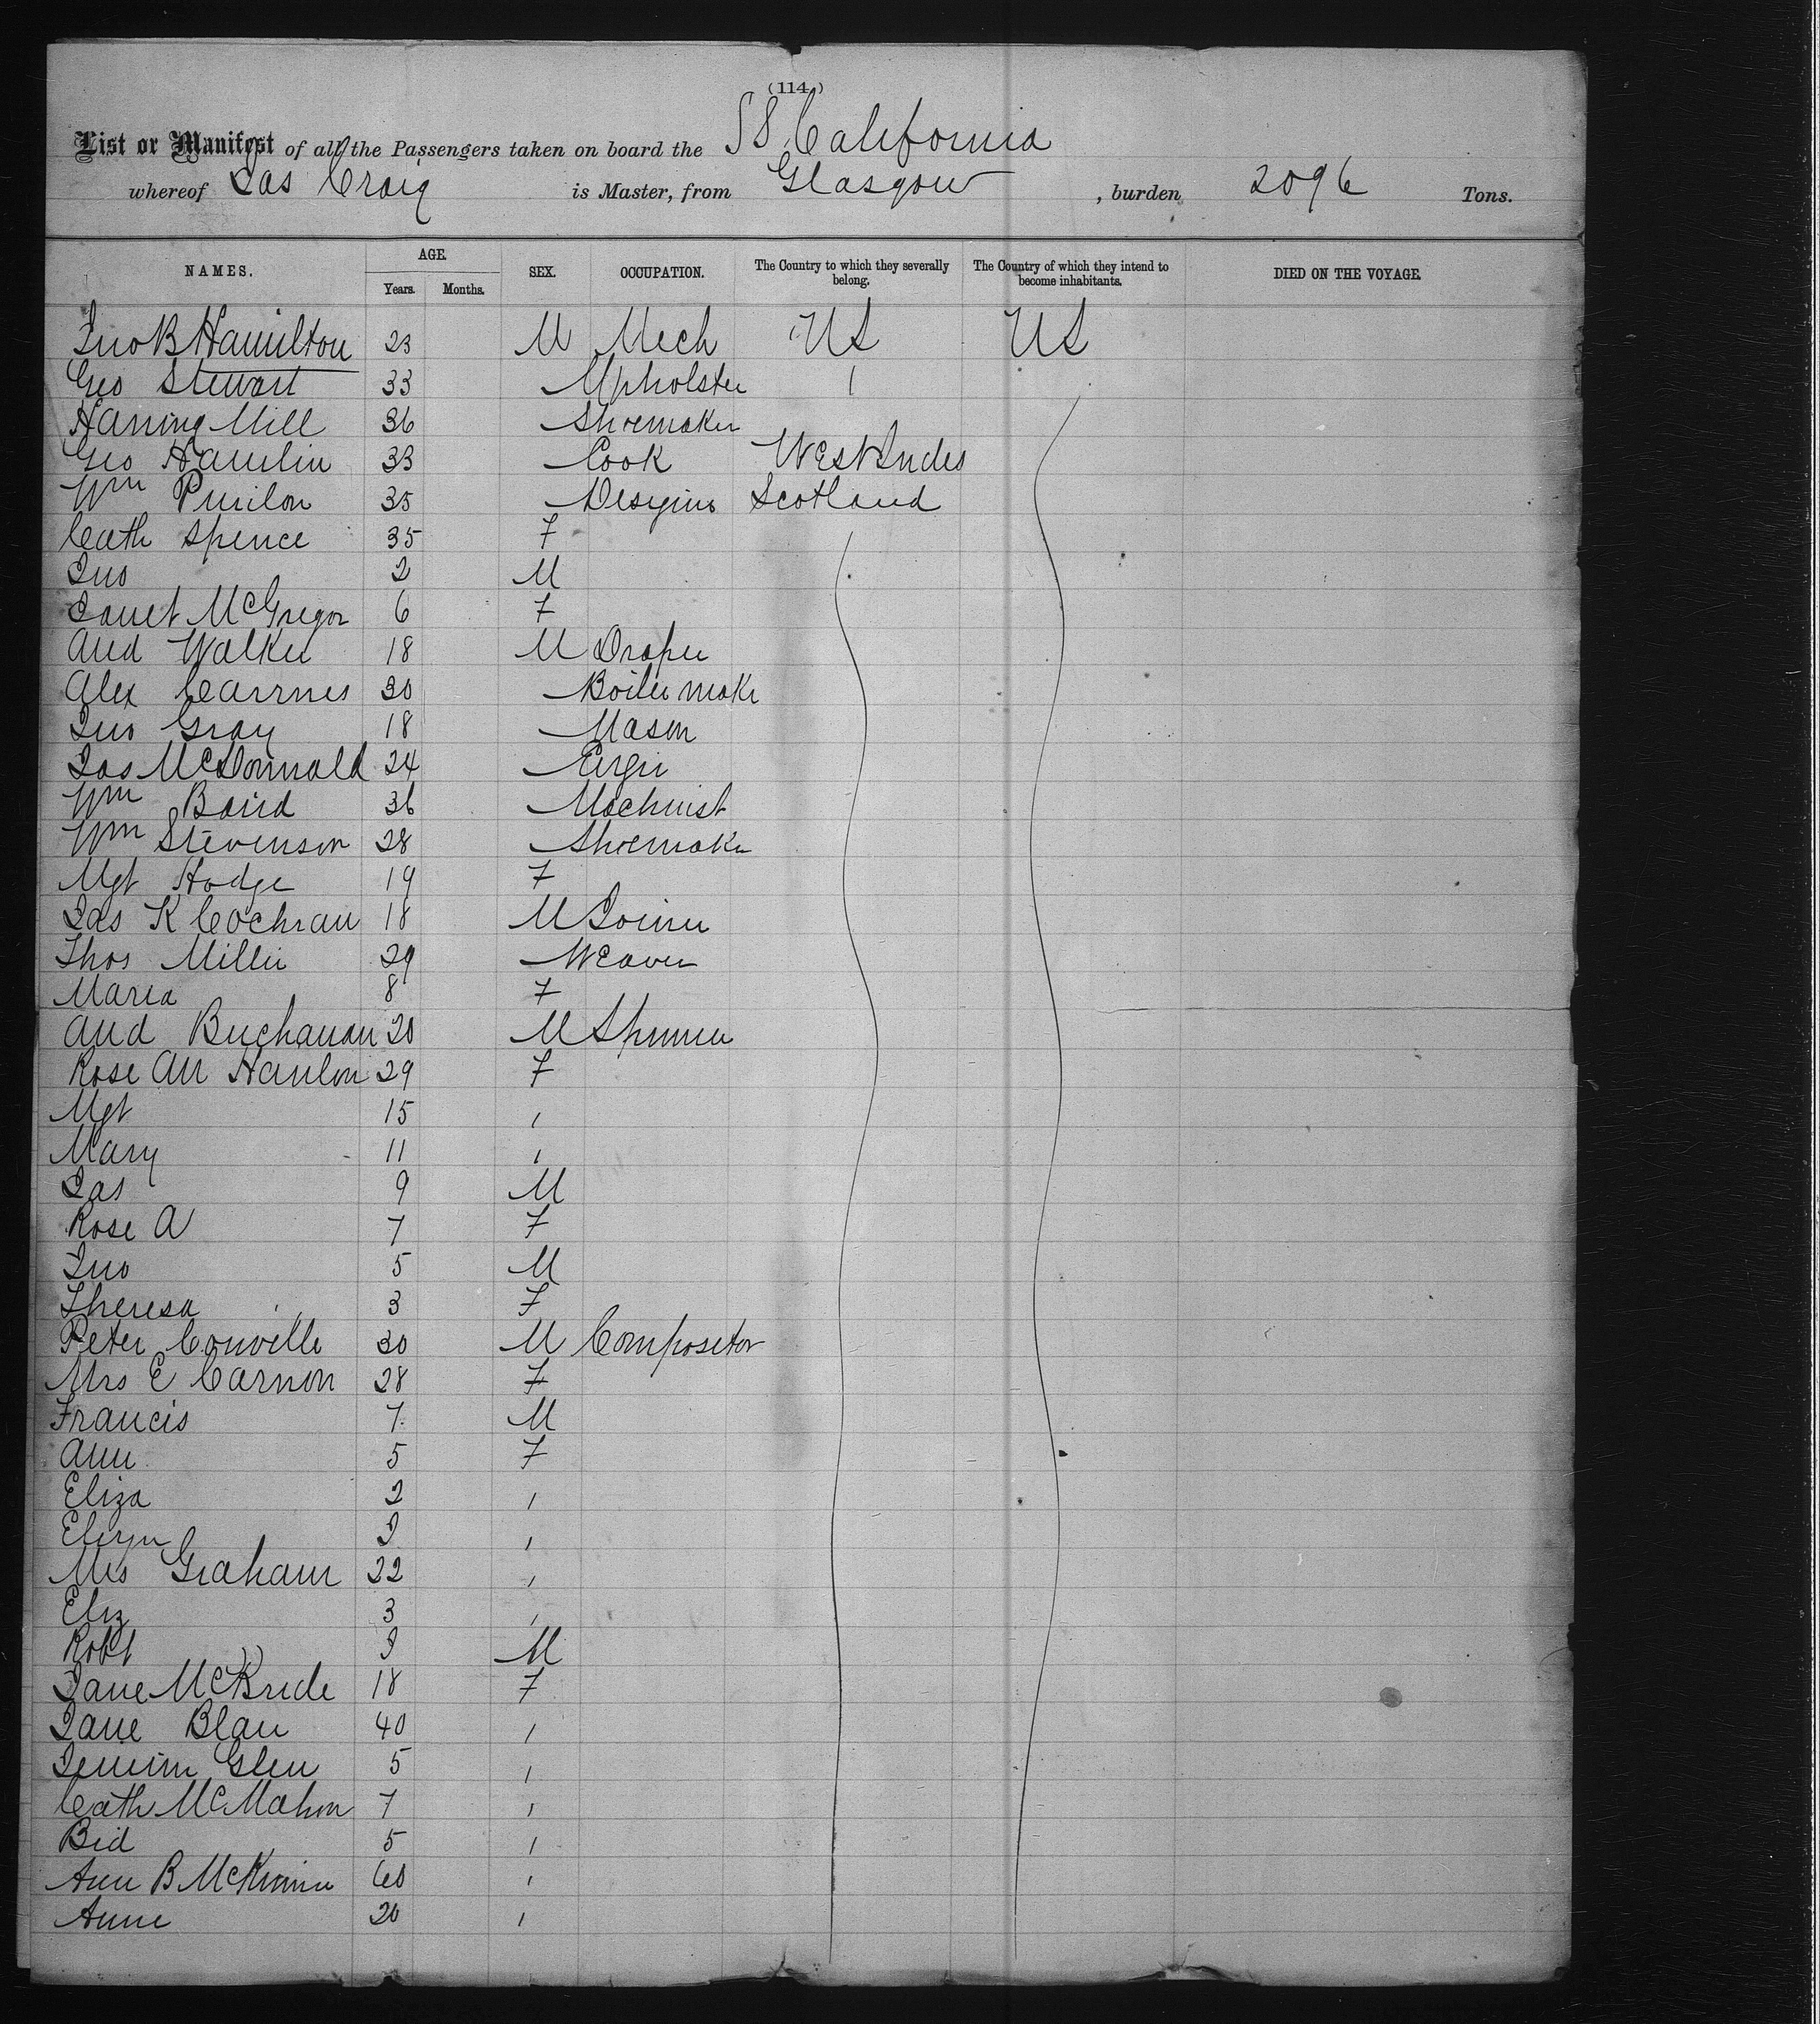 (114)
List or Manifest of all the Passengers taken on board the SS California
whereof Jas Craig is Master, from Glasgow, burden 2096 Tons.
NAMES. AGE. Years. Months. SEX. OCCUPATION. The Country to which they severally belong. The Country of which they intend to become inhabitants. DIED ON THE VOYAGE.
Jno B Hamilton 23 M Mech US US
Geo Stewart 33 Upholster
Mill 36 Shoemaker
Geo Hamlin 33 Cook West Indes
Wm 35 Scotland
Cath Spence 35 F
Jno 2 M
Janet McGregor 6 F
And Walker 18 M Draper
Alex Cairnes 30 Boiler make
Jno Gray 18 Mason
Jas McDonnald 24 Engr
Wm Baird 36 Machinist
Wm Stevenson 28 Shoemaker
Mgt Hodge 19 F
Jas K Cochran 18 M Joiner
Thos Miller 29 Weaver
Maria 8 F
And Buchanan 20 M Spinner
Rose An Hanlon 29 F
Mgt 15 "
Mary 11 "
Jas 9 M
Rose A 7 F
Jno 5 M
Theresa 3 F
Peter Conville 30 M Compositor
Mrs E Carnon 28 F
Francis 7 M
Ann 5 F
Eliza 2 "
2 "
Mrs Graham 22 "
Eliz 3 "
Robt M
Jane McBride 18 F
Jane Blair 40 "
Glen 5 "
Cath McMahon 7 "
Bid 5 "
Ann B 60 "
Anne 20 "